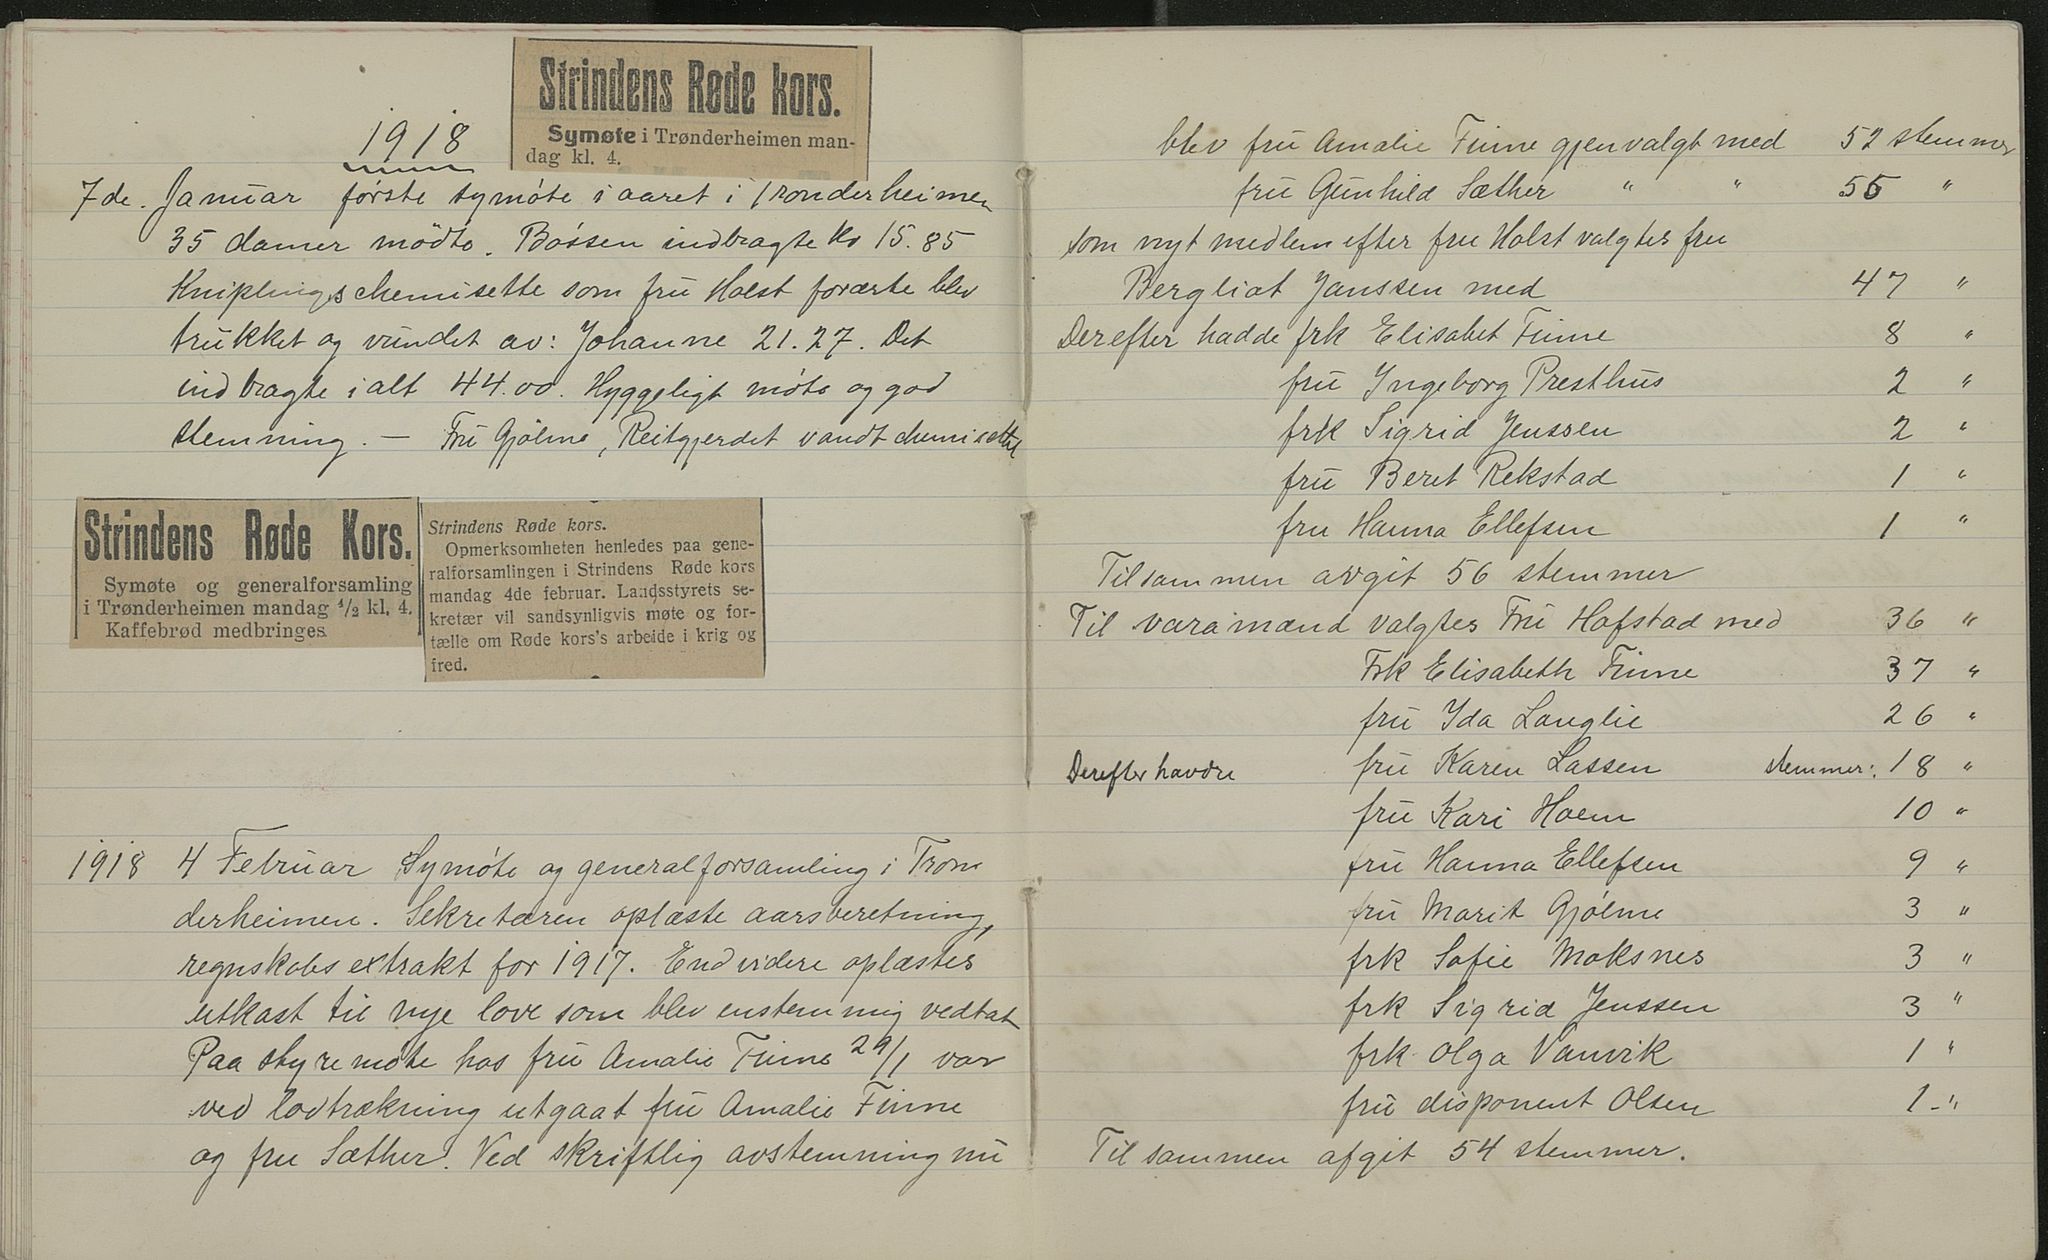 Strindens Røde kors.
Symøte i Trønderheimen man-
dag kl. 4.
1918
7de. Januar første symøte i aaret i Trønderheimen
35 damer mødte. Bøssen indbragte Kr 15.85
Kniplingschemisette som fru Holst forærte blev
trukket og vundet av: Johanne 21.27. Det
indbragte ialt 44.00. Hyggeligt møte og god
stemning. — Fru Gjølme, Reitgjerdet vandt chemisette
Strindens Røde Kors.
Symøte og generalforsamling
i Trønderheimen mandag 4/2 kl. 4.
Kaffebrød medbringes
Strindens Røde kors.
Opmerksomheten henledes paa gene-
ralforsamlingen i Strindens Røde kors
mandag 4de februar. Landsstyrets se-
kretær vil sandsynligvis møte og for-
tælle om Røde kors's arbeide i krig og
fred.
1918 4 Februar Symøte og generalforsamling i Trøn
derheimen. Sekretæren oplæste aarsberetning,
regnskabsextrakt for 1917. Endvidere oplæstes
utkast til nye love som blev enstemmig vedtat
Paa styremøte hos fru Amalie Finne 29/1 var
ved lodtrækning utgaat fru Amalie Finne
og fru Sæther. Ved skriftlig avstemning nu
blev fru Amalie Finne gjenvalgt med 52 stemmer
fru Gunhild Sæther " " 55 "
som nyt medlem efter fru Holst valgtes fru
Bergliot Janssen med 47 "
Derefter hadde frk Elisabet Finne 8 "
fru Ingeborg Presthus 2 "
frk Sigrid Jenssen 2 "
fru Beret Rekstad 1 "
fru Hanna Ellefsen 1 "
Tilsammen avgit 56 stemmer
Til varamænd valgtes Fru Hofstad med 36 "
Frk Elisabeth Finne 37 "
fru Ida Langlie 26 "
Derefter havdre fru Karen Lassen stemmer: 18 "
fru Kari Hoem 10 "
fru Hanna Ellefsen 9 "
fru Marit Gjølme 3 "
frk Sofie Moksnes 3 "
frk Sigrid Jenssen 3 "
frk Olga Vanvik 1 "
fru disponent Olsen 1 - "
Tilsammen afgit 54 stemmer.